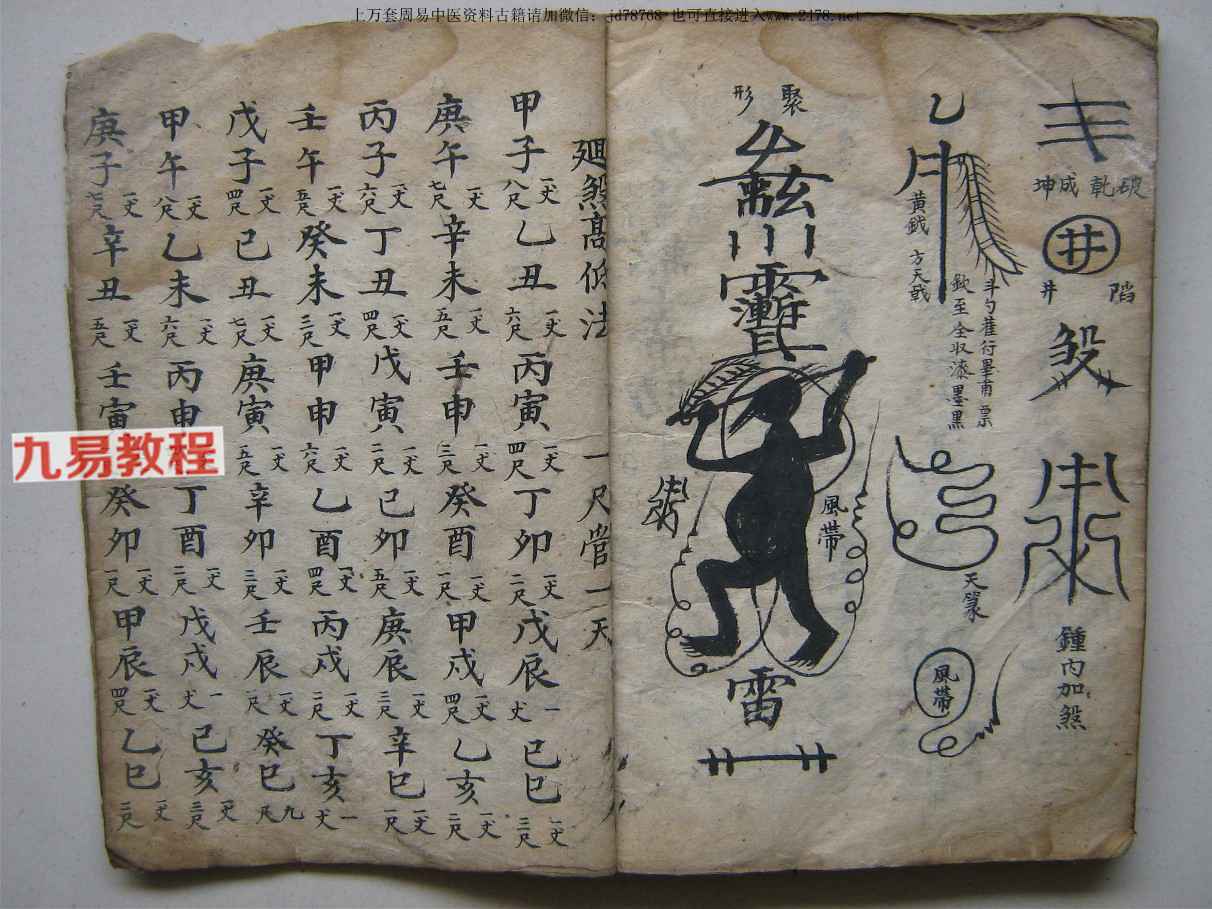 上万套周易中医资料古籍请加微信：jd78768 也可直接进入www.2178.net
破乾成坤
井
陷井
煞
鍾内加煞
乙
黃鉞
方天戟
風帶
聚形
風帶
雷
廻煞高低法 一尺管一天
甲子一丈八尺乙丑一丈六尺丙寅一丈四尺丁卯一丈二尺戊辰一丈己巳一丈三尺
庚午一丈七尺辛未一丈五尺壬申一丈三尺癸酉一丈一尺甲戌一丈四尺乙亥一丈二尺
丙子一丈六尺丁丑一丈四尺戊寅一丈二尺己卯一丈五尺庚辰一丈三尺辛巳一丈一尺
壬午一丈五尺癸未一丈三尺甲申一丈六尺乙酉一丈四尺丙戌一丈二尺丁亥一丈
戊子一丈四尺己丑一丈七尺庚寅一丈五尺辛卯一丈三尺壬辰一丈一尺癸巳九尺
甲午一丈八尺乙未一丈六尺丙申丁酉一丈二尺戊戌一丈己亥一丈三尺
庚子一丈七尺辛丑一丈五尺壬寅癸卯一丈一尺甲辰一丈四尺乙巳一丈二尺
九易教程